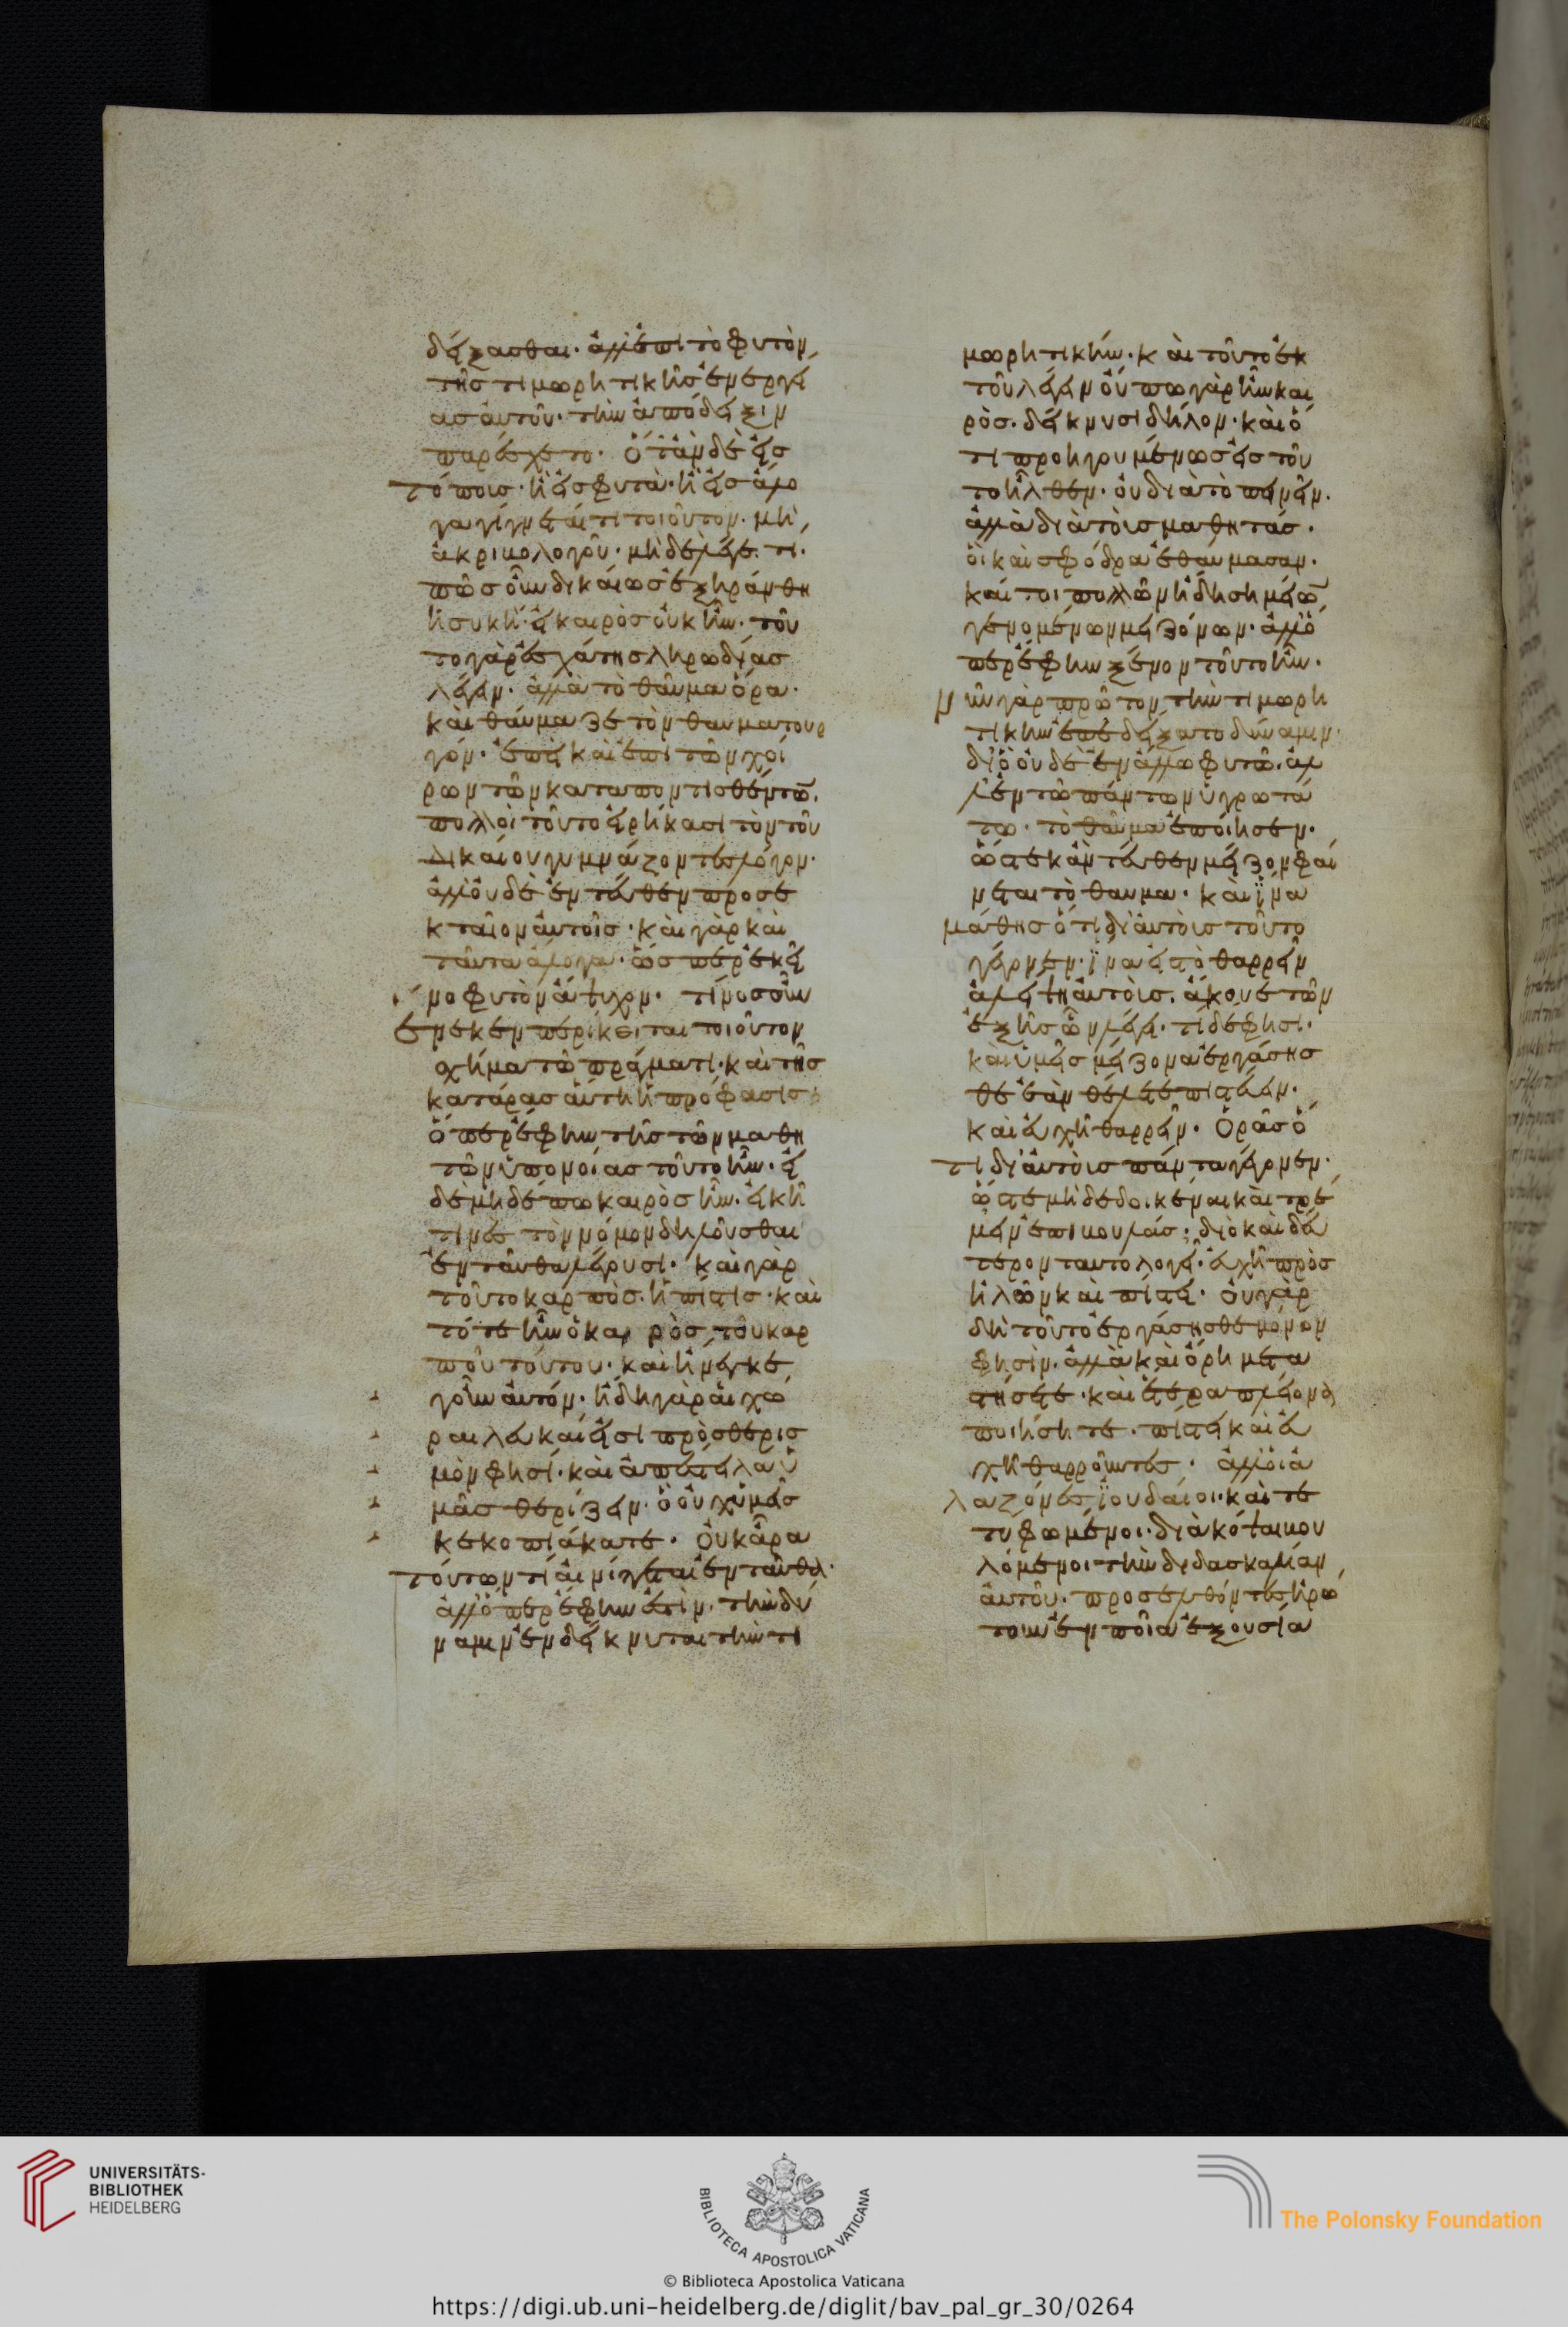 δείξασθαι· ἀλλ' ἐπὶ τὸ φυτὸν
τῆς τιμωρητικῆς ἐνεργεί
ας αὐτοῦ· τὴν ἀπόδειξιν
παρέσχετο. Ὅταν δὲ εἰς
τόποις· ἢ εἰς φυτὰ· ἢ εἰς ἄλο
γα γίγνεταί τι τοιοῦτον· μὴ
ἀκριβολογοῦ· μὴ δὲ λέγε. τί·
πῶς οὖν δικαίως ἐξηράνθη
ἡ συκῆ· εἰ καιρὸς οὐκ ἦν· τοῦ
το γὰρ ἐσχάτης ληρωδίας
λέγειν· ἀλλὰ τὸ θαῦμα ὅρα·
καὶ θαύμαζε τὸν θαυματουρ
γόν· ἐπεὶ καὶ ἐπὶ τῶν χοί
ρων τῶν καταποντισθέντων·
πολλοὶ τοῦτο εἰρήκασι τὸν τοῦ
δικαίου γυμνάζοντες λόγον·
ἀλλ' οὐδὲ ἐνταῦθεν προσε
κταῖον αὐτοῖς· καὶ γὰρ καὶ
ταῦτα ἄλογα· ὥσπερ ἐκεῖ
νο φυτὸν ἄψυχον· τίνος οὖν
ἕνεκεν περίκειται τοιοῦτον
σχῆμα τῷ πράγματι· καὶ τῆς
κατάρας αὕτη ἡ πρόφασις·
ὅπερ ἔφην τῆς τῶν μαθη
τῶν ὑπονοίας τοῦτο ἦν· εἰ
δὲ μηδέπω καιρὸς ἦν· εἰκῆ
τινὲς τὸν νόμον δηλοῦσθαι
ἐνταῦθα λέγουσι· καὶ γὰρ
τοῦτο καρπὸς· ἡ πίστις· καὶ
τότε ἦν ὁ καιρὸς τοῦ καρ
ποῦ τούτου· καὶ ἤνεγκε
γοῦν αὐτόν· ἤδη γὰρ αἱ χῶ
ραι λευκαί εἰσι πρὸς θερισ
μὸν φησί· καὶ ἀπέστειλα ὑ
μᾶς θερίζειν· ὃ οὐχ ὑμεῖς
κεκοπιάκατε· Οὐκ ἄρα
τούτων τι αἰνίγεται ἐνταῦθα·
ἀλλ' ὅπερ ἔφην ἐστὶν· τὴν δύ
ναμιν ἐνδείκνυται τὴν τι
μωρητικήν· καὶ τοῦτο ἐκ
τοῦ λέγειν οὔπω γὰρ ἦν και
ρὸς· δείκνυσι δῆλον· καὶ ὅ
τι προηγουμένως εἰς τοῦ
το ἦλθεν· οὐ διὰ τὸ πεινεῖν·
ἀλλὰ διὰ τοὺς μαθητάς·
οἳ καὶ σφόδρα ἐθαύμασαν·
καίτοι πολλῶν ἤδη σημείων
γενομένων μειζόνων· ἀλλ' ὅ
περ ἔφην ξένον τοῦτο ἦν·
νῦν γὰρ πρῶτον τὴν τιμωρη
τικὴν ἐπεδείξατο δύναμιν·
διὸ οὐδὲ ἐν ἄλλῳ φυτῷ· ἀλ
λ' ἐν τῷ πάντων ὑγρωτά
τῳ· τὸ θαῦμα ἐποίησεν·
ὥστε κἀντεῦθεν μεῖζον φαί
νεται τὸ θαυμα· καὶ ἵνα
μάθῃς ὅτι δι' αὐτοὺς τοῦτο
γέγονεν· ἵνα εἰς τὸ θαρρεῖν
ἀλείψῃ αὐτοὺς· ἄκουε τῶν
ἑξῆς ὧν λέγει· τί δέ φησι·
καὶ ὑμεῖς μείζονα ἐργάσησ
θε ἐὰν θέλετε πιστεύειν·
καὶ εὐχῇ θαρρεῖν· Ὁρᾷς ὅ
τι δι' αὐτοὺς πάντα γέγονεν·
ὥστε μὴ δεδοικέναι καὶ τρέ
μειν ἐπιβουλάς· διὸ καὶ δεύ
τερον ταυτολογεῖ· εὐχῇ προσ
ηλῶν καὶ πίστει· οὐ γὰρ
δὴ τοῦτο ἐργάσησθε μόνον
φησὶν· ἀλλὰ καὶ ὄρη μετα
στήσετε· καὶ ἕτερα πλείονα
ποιήσητε· πίστει καὶ εὐ
χῇ θαρροῦντες· ἀλλ' οἱ ἀ
λαζόνες ἰουδαίοι· καὶ τε
τυφωμένοι· διακόψαι βου
λόμενοι τὴν διδασκαλίαν
αὐτοῦ· προσελθόντες ἠρώ
των ἐν ποίᾳ ἐξουσίᾳ
UNIVERSITÄTS-
BIBLIOTHEK
HEIDELBERG
BIBLIOTECA APOSTOLICA VATICANA
The Polonsky Foundation
© Biblioteca Apostolica Vaticana
https://digi.ub.uni-heidelberg.de/diglit/bav_pal_gr_30/0264